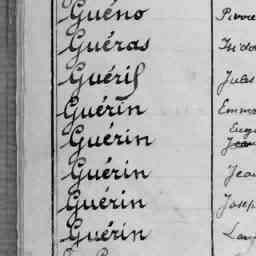 Guéno Pierre
Guéras Isido
Guéril Jules
Guérin Emma
Eugè
Guérin Jean
Guérin Jean
Guérin Josep
Guérin